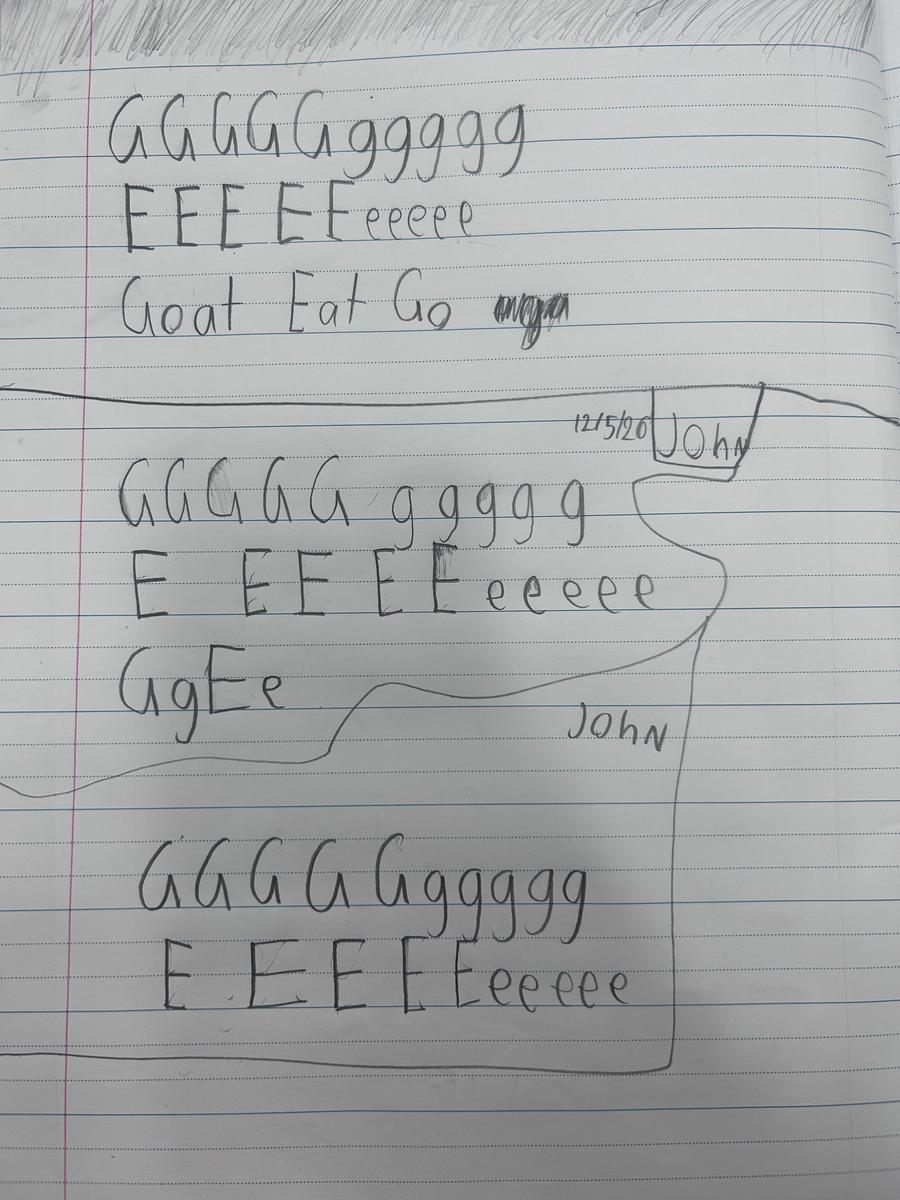 GGGGGggggg
EEEEEeeeee
Goat Eat Go
12/5/20 JOhN
GGGGG ggggg
E EEEEeeeee
GgEe
JOhN
GGGGGggggg
E EEEEeeeee